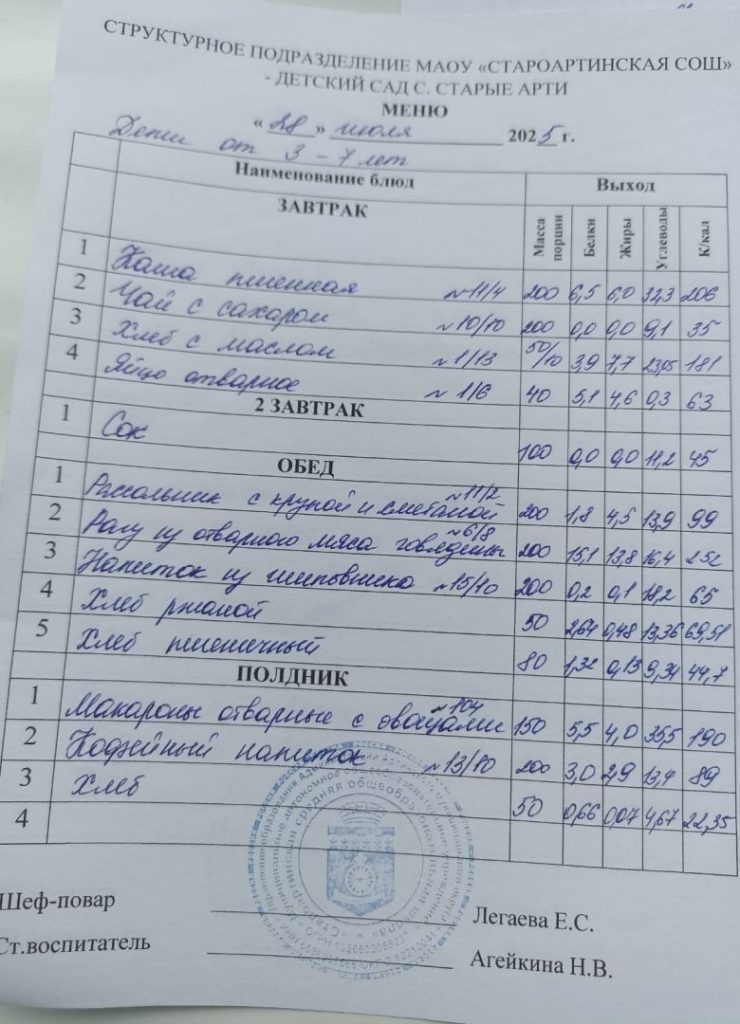 СТРУКТУРНОЕ ПОДРАЗДЕЛЕНИЕ МАОУ «СТАРОАРТИНСКАЯ СОШ»
- ДЕТСКИЙ САД С. СТАРЫЕ АРТИ
МЕНЮ
« 28 » июля 2025 г.
Дети от 3 - 7 лет
Наименование блюд Выход
ЗАВТРАК Масса порции Белки Жиры Углеводы К/кал
1 Каша пшенная №11/4 200 6,5 6,0 32,3 206
2 Чай с сахаром №10/10 200 0,0 0,0 9,1 35
3 Хлеб с маслом №1/13 50/10 3,9 7,7 23,05 181
4 Яйцо отварное №1/6 40 5,1 4,6 0,3 63
2 ЗАВТРАК
1 Сок 100 0,0 0,0 11,2 45
ОБЕД
1 Рассольник с крупой и сметаной №11/2 200 1,8 4,5 13,9 99
2 Рагу из отварного мяса говядины №6/8 200 15,1 13,8 16,4 252
3 Напиток из шиповника №15/10 200 0,2 0,1 18,2 65
4 Хлеб ржаной 50 2,64 0,48 13,36 69,51
5 Хлеб пшеничный 80 1,32 0,13 9,34 44,7
ПОЛДНИК
1 Макароны отварные с овощами №104 150 5,5 4,0 35,5 190
2 Кофейный напиток №13/10 200 3,0 2,9 13,4 89
3 Хлеб 50 0,66 0,07 4,67 22,35
4
Шеф-повар Легаева Е.С.
Ст.воспитатель Агейкина Н.В.